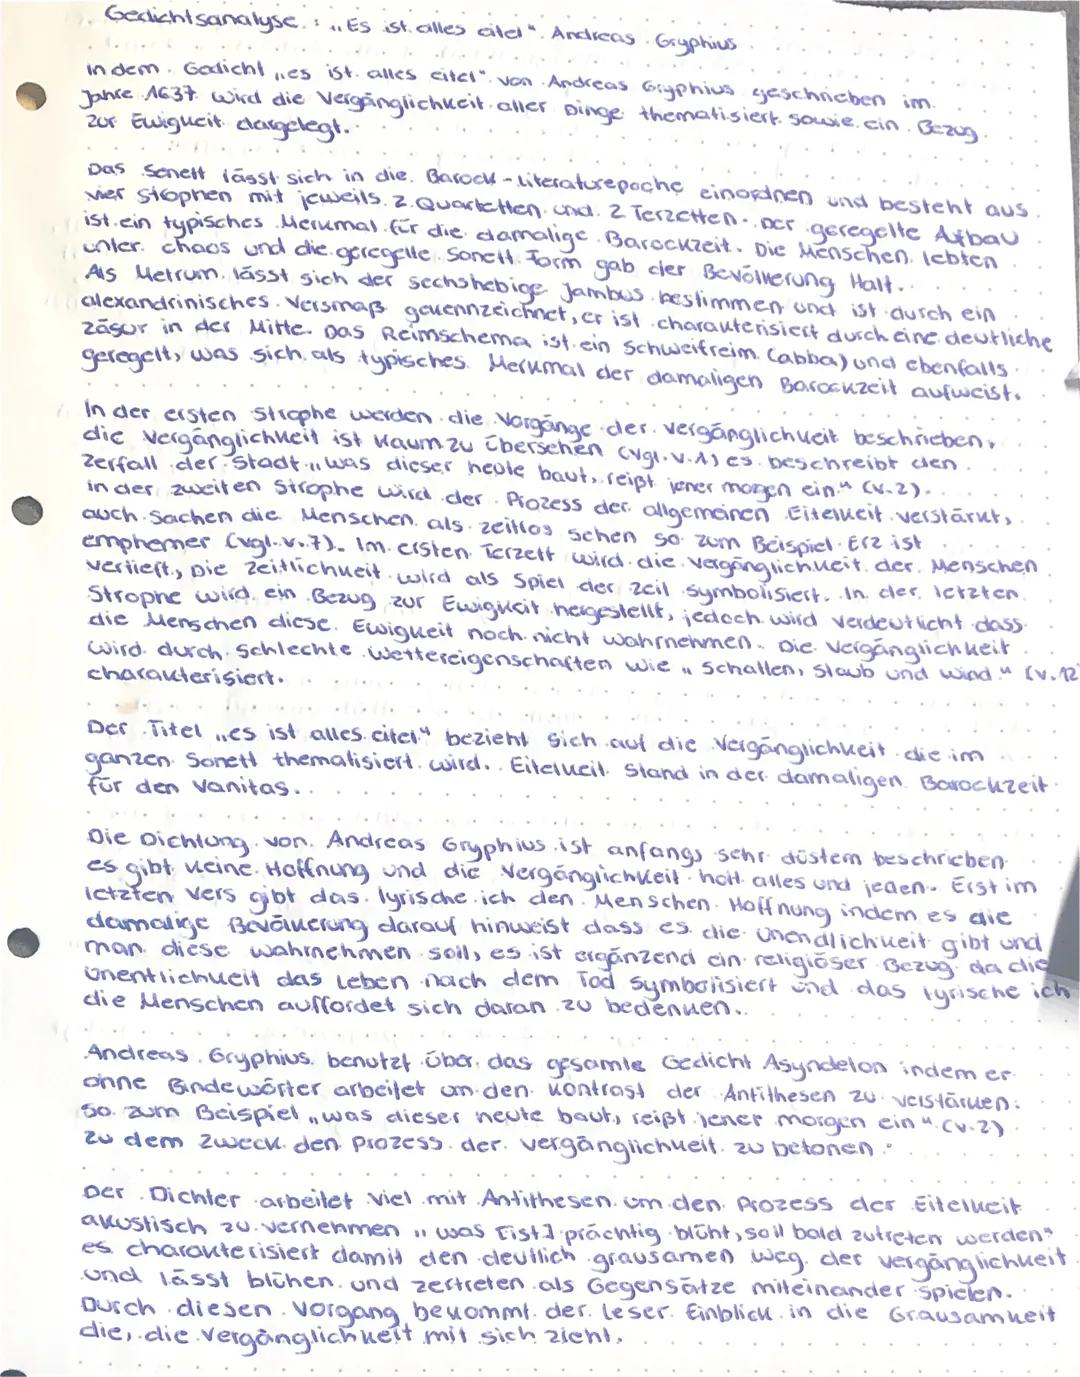 Gedichtsanalyse : „Es ist alles eitel" Andreas Gryphius
In dem Gedicht „es ist alles eitel" von Andreas Gryphius geschrieben im
Jahre 1637 wird die Vergänglichkeit aller Dinge thematisiert sowie ein Bezug
zur Ewigkeit dargelegt.
Das Sonett lässt sich in die Barock-Literaturepoche einordnen und besteht aus
vier Strophen mit jeweils 2 Quartetten und 2 Terzetten. Der geregelte Aufbau
ist ein typisches Merkmal für die damalige Barockzeit. Die Menschen lebten
unter chaos und die geregelte Sonett Form gab der Bevölkerung Halt.
Als Metrum lässt sich der sechshebige Jambus bestimmen und ist durch ein
alexandrinisches Versmaß gekennzeichnet, er ist charakterisiert durch eine deutliche
Zäsur in der Mitte. Das Reimschema ist ein Schweifreim (abba) und ebenfalls
geregelt, was sich als typisches Merkmal der damaligen Barockzeit aufweist.
In der ersten Strophe werden die Vorgänge der Vergänglichkeit beschrieben,
die Vergänglichkeit ist kaum zu übersehen (vgl. v.1) es beschreibt den
Zerfall der Stadt „was dieser heute baut, reißt jener morgen ein" (v.2).
in der zweiten Strophe wird der Prozess der allgemeinen Eitelkeit verstärkt,
auch Sachen die Menschen als zeitlos sehen so zum Beispiel Erz ist
emphemer (vgl. v.7). Im ersten Terzett wird die Vergänglichkeit der Menschen
vertieft, Die Zeitlichkeit wird als Spiel der Zeit symbolisiert. In der letzten
Strophe wird ein Bezug zur Ewigkeit hergestellt, jedoch wird verdeutlicht dass
die Menschen diese Ewigkeit noch nicht wahrnehmen. Die Vergänglichkeit
wird durch schlechte Wettereigenschaften wie „Schatten, Staub und Wind" (v.12
charakterisiert.
Der Titel „es ist alles eitel" bezieht sich auf die Vergänglichkeit die im
ganzen Sonett thematisiert wird. Eitelkeit stand in der damaligen Barockzeit
für den Vanitas.
Die Dichtung von Andreas Gryphius ist anfangs sehr düstern beschrieben
es gibt keine Hoffnung und die Vergänglichkeit holt alles und jeden. Erst im
letzten Vers gibt das lyrische ich den Menschen Hoffnung indem es die
damalige Bevölkerung darauf hinweist dass es die Unendlichkeit gibt und
man diese wahrnehmen soll, es ist ergänzend ein religiöser Bezug da die
Unentlichkeit das Leben nach dem Tod symbolisiert und das lyrische ich
die Menschen auffordet sich daran zu bedenken.
Andreas Gryphius benutzt über das gesamte Gedicht Asyndeton indem er
ohne Bindewörter arbeitet um den Kontrast der Antithesen zu verstärken.
So zum Beispiel „was dieser heute baut, reißt jener morgen ein" (v.2)
zu dem Zweck den Prozess der Vergänglichkeit zu betonen.
Der Dichter arbeitet viel mit Antithesen um den Prozess der Eitelkeit
akustisch zu vernehmen „was [ist] prächtig blüht, soll bald zutreten werden"
es charakterisiert damit den deutlich grausamen Weg der Vergänglichkeit
und lässt blühen und zertreten als Gegensätze miteinander spielen.
Durch diesen Vorgang bekommt der Leser Einblick in die Grausamkeit
die, die Vergänglichkeit mit sich zieht.